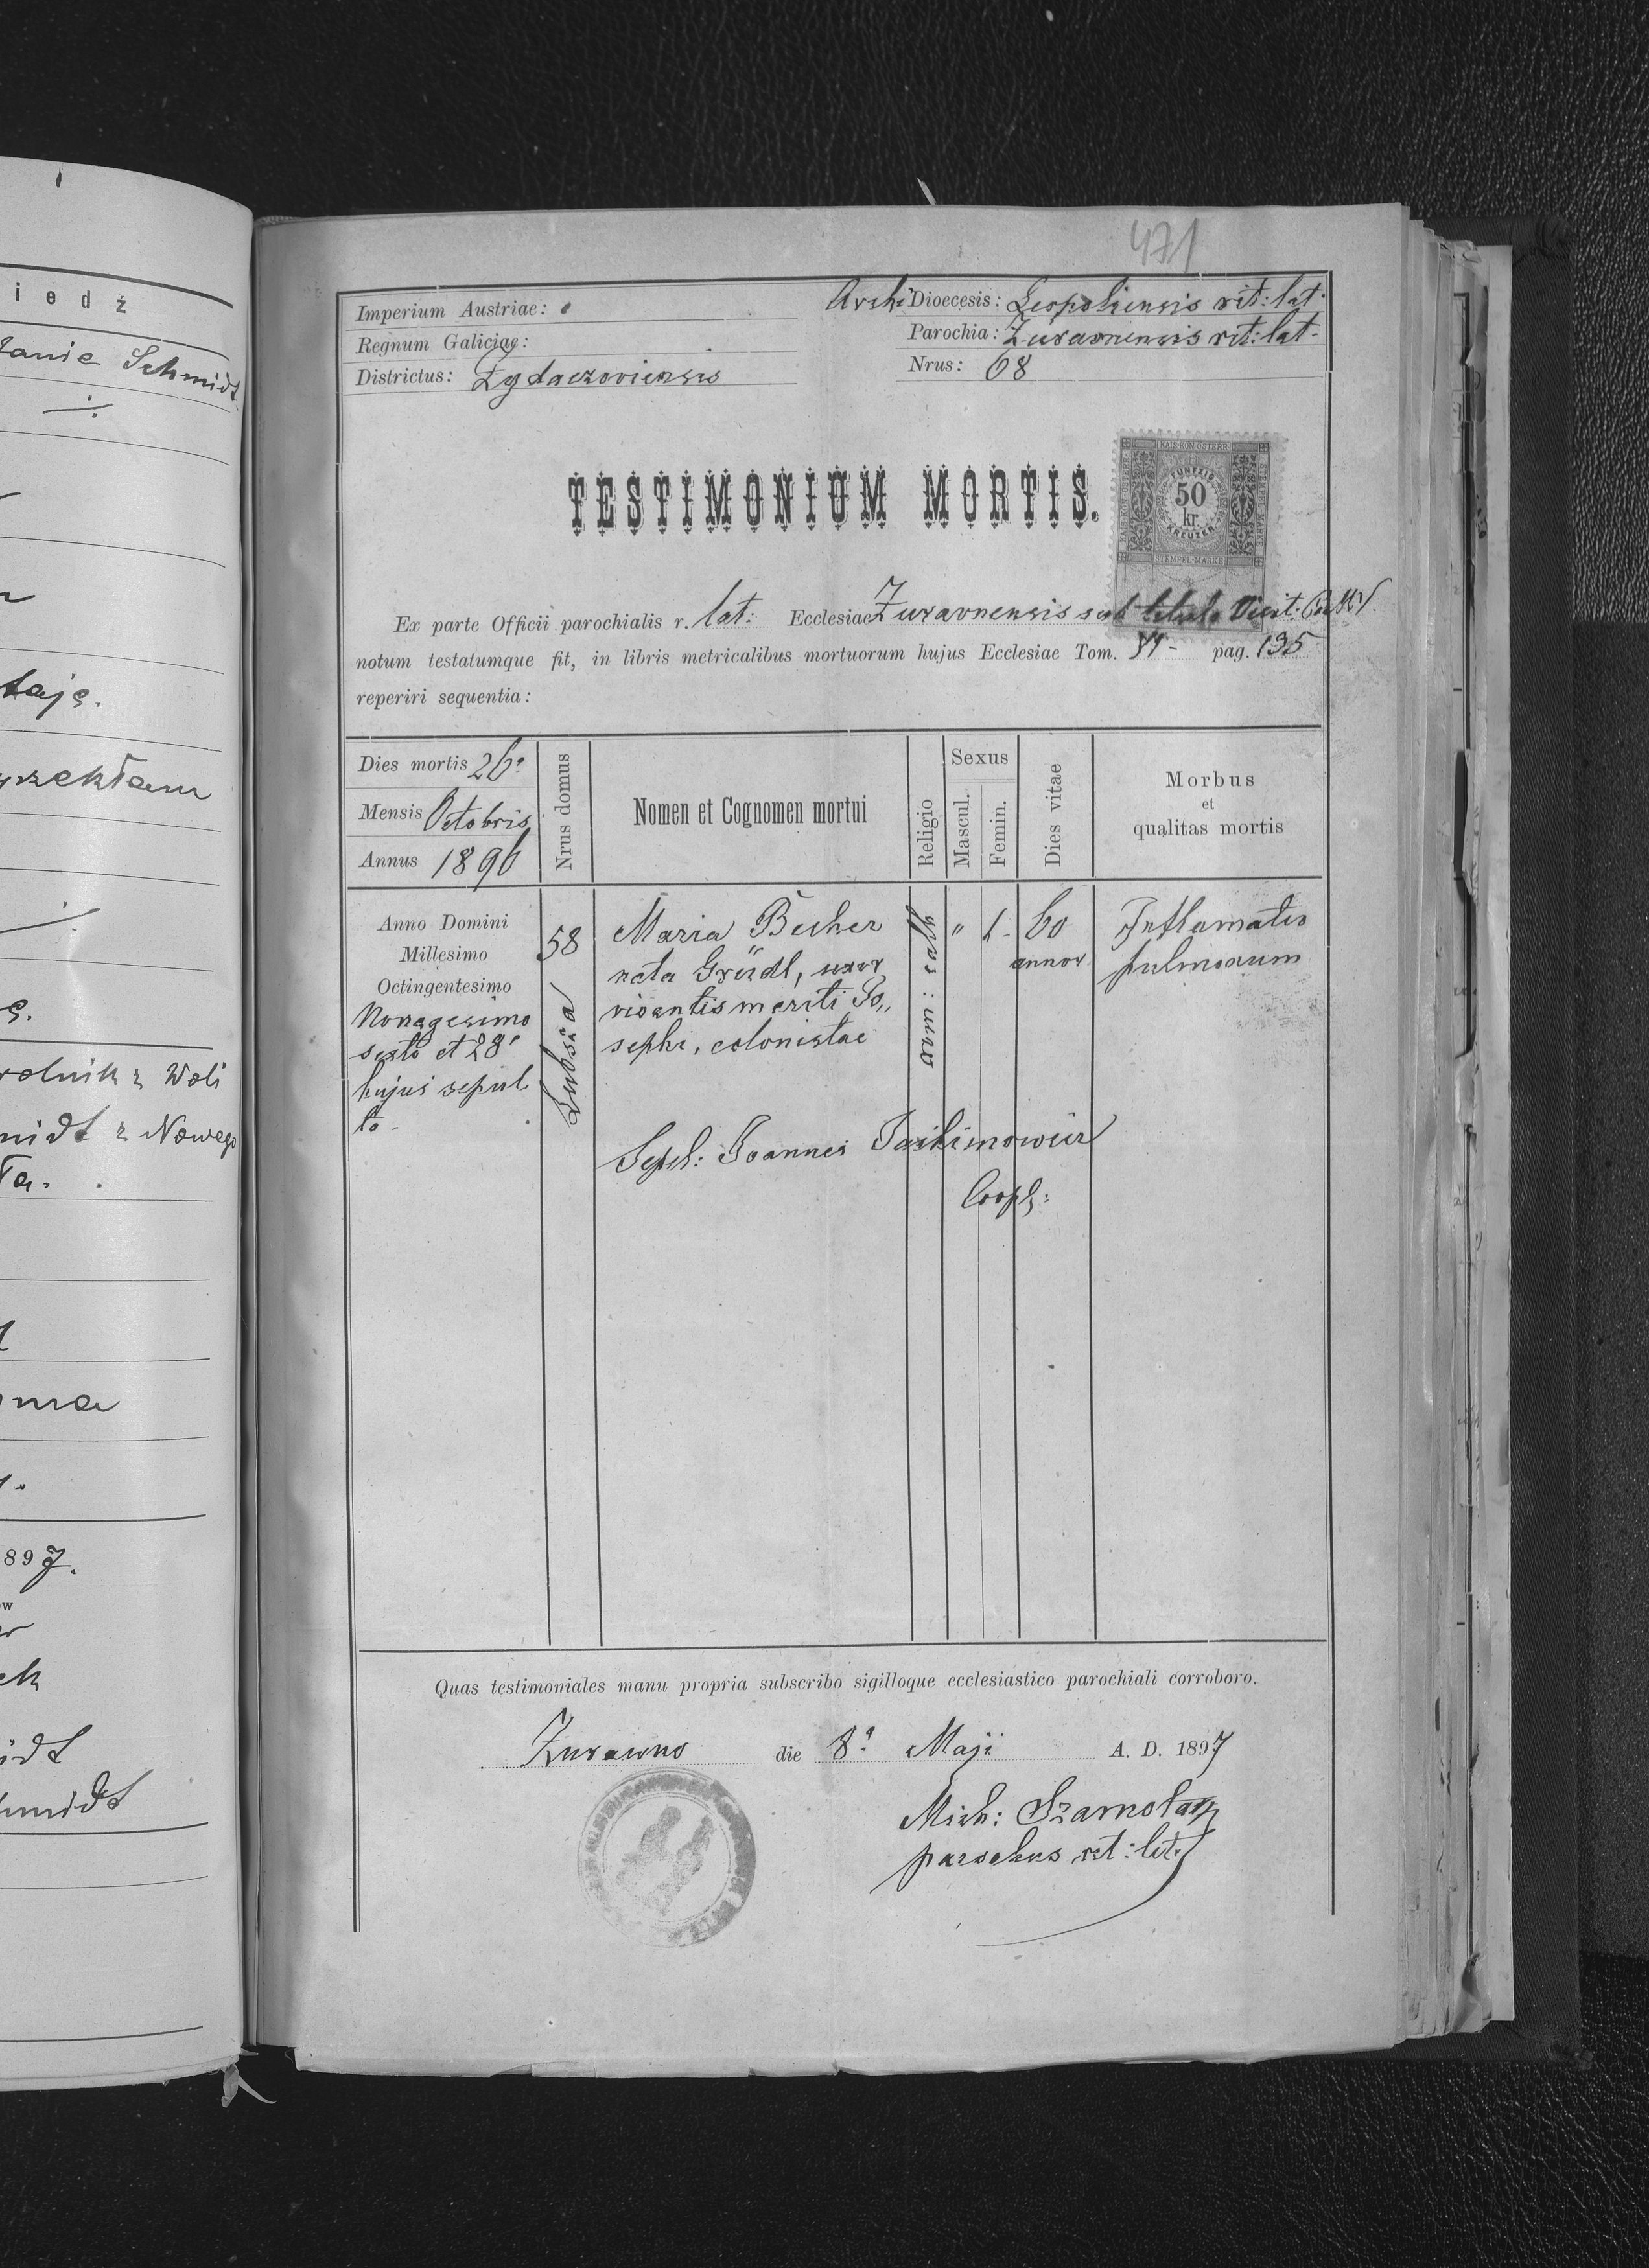 iedź
Schmidt
taję.
rzekłam
rolnik z Woli
midt z Nowego
897.
w
idt
hmidt
471
Imperium Austriae:
Regnum Galiciae:
Districtus: Zydaczoviensis
Archi Dioecesis: Leopoliensis rit: lat:
Parochia: Zuravnensis rit: lat:
Nrus: 68
TESTIMONIUM MORTIS.
KAIS. KÖN. ÖSTERR.
FÜNFZIG
50
kr.
KREUZER
STEMPEL-MARKE
Ex parte Officii parochialis r. lat: Ecclesiae Zuravnensis sub titulo Visit: B.M.V.
notum testatumque fit, in libris metricalibus mortuorum hujus Ecclesiae Tom. VI- pag. 135
reperiri sequentia:
Dies mortis 26a
Mensis Octobris
Annus 1896
Nrus domus
Nomen et Cognomen mortui
Religio
Sexus
Mascul.
Femin.
Dies vitae
Morbus
et
qualitas mortis
Anno Domini
Millesimo
Octingentesimo
Nonagesimo
sexto et 28a
hujus sepul
ta-
58
Lubsza
Maria Becher
nata Grüdl, uxor
viventis mariti Jo„
sephi, colonistae
Sepel: Joannes
Coop:
" 1-
60
annor
Inflamatio
pulmonum
Quas testimoniales manu propria subscribo sigilloque ecclesiastico parochiali corroboro.
Zurawno die 8a Maji A. D. 1897
Mich: Szamota
parochus rit: lat: